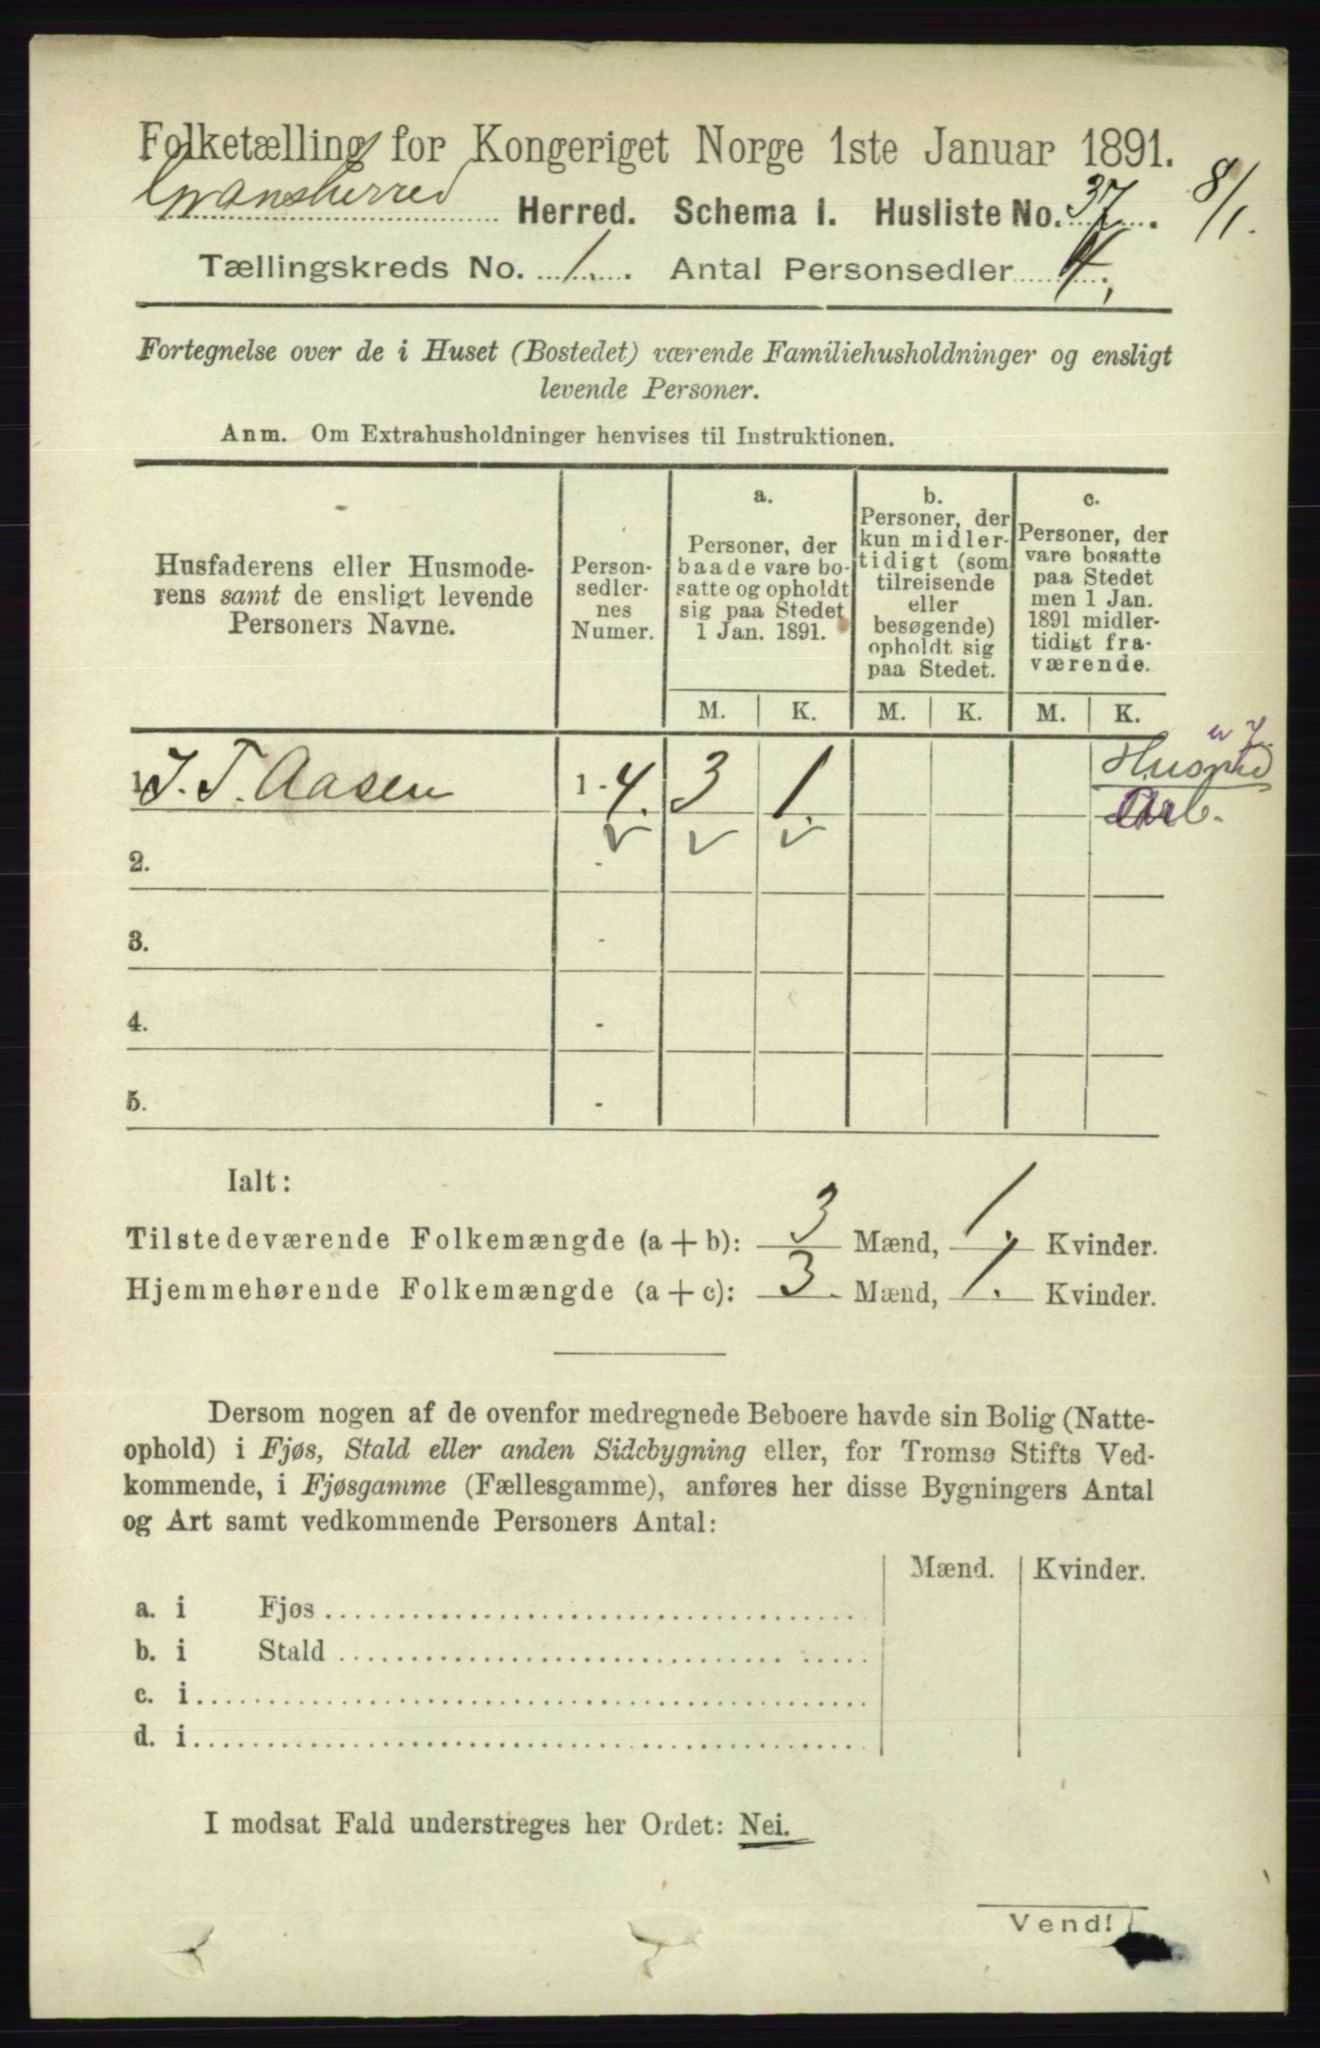 Folketælling for Kongeriget Norge 1ste Januar 1891.
Gransherred Herred. Schema I. Husliste No. 37. 8/1.
Tællingskreds No. 1. Antal Personsedler 4.
Fortegnelse over de i Huset (Bostedet) værende Familiehusholdninger og ensligt
levende Personer.
Anm. Om Extrahusholdninger henvises til Instruktionen.
Husfaderens eller Husmode-
rens samt de ensligt levende
Personers Navne.
Person-
sedler-
nes
Numer.
a.
Personer, der
baade vare bo-
satte og opholdt
sig paa Stedet
1 Jan. 1891.
b.
Personer, der
kun midler-
tidigt (som
tilreisende
eller
besøgende)
opholdt sig
paa Stedet.
c.
Personer, der
vare bosatte
paa Stedet
men 1 Jan.
1891 midler-
tidigt fra-
værende.
M. K. M. K. M. K.
1. J. T. Aasen 1-4. 3 1.
Arb.
2. -
3. -
4. -
5. -
Ialt:
Tilstedeværende Folkemængde (a + b): 3 Mænd, 1. Kvinder.
Hjemmehørende Folkemængde (a + c): 3. Mænd, 1. Kvinder.
Dersom nogen af de ovenfor medregnede Beboere havde sin Bolig (Natte-
ophold) i Fjøs, Stald eller anden Sidebygning eller, for Tromsø Stifts Ved-
kommende, i Fjøsgamme (Fællesgamme), anføres her disse Bygningers Antal
og Art samt vedkommende Personers Antal:
Mænd. Kvinder.
a. i Fjøs
b. i Stald
c. i
d. i
I modsat Fald understreges her Ordet: Nei.
Vend!